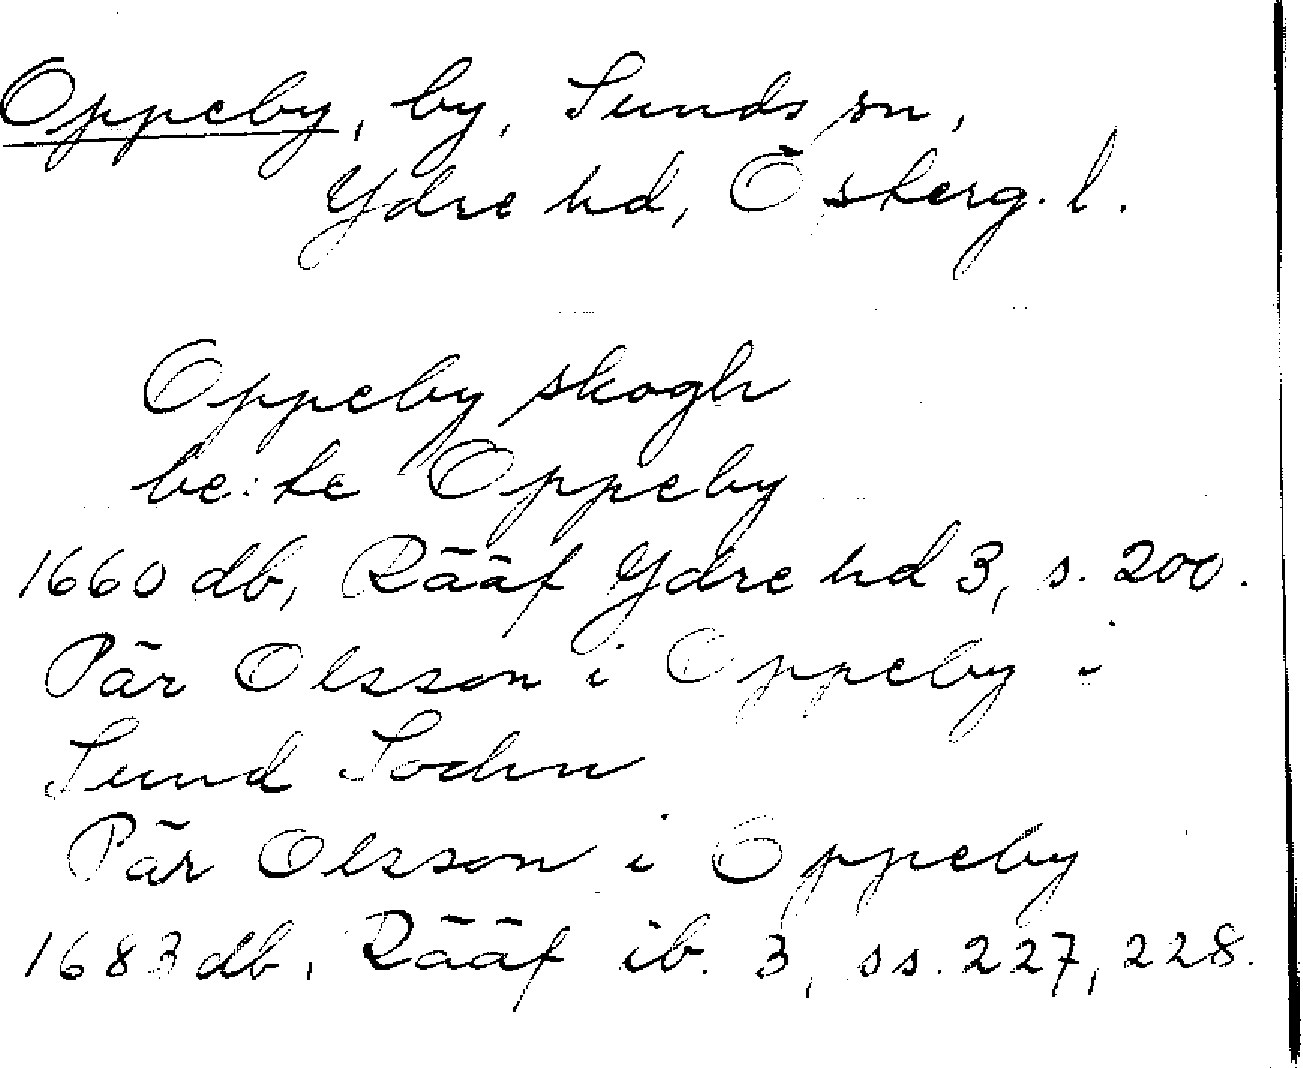 Oppeby, by, Sunds sn,
Ydre hd, Österg. l.
Oppeby skogh
be:te Oppeby
1660 db, Rääf Ydre hd 3, s. 200.
Pär Olsson i Oppeby i
Sund Sochn
Pär Olsson i Oppeby
1683 db, Rääf ib. 3, ss. 227, 228.